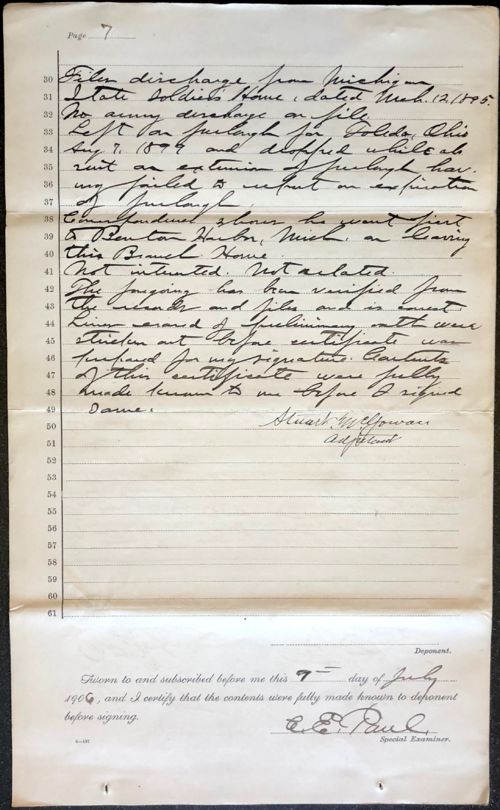 Page 7
30 Files discharge from Michigan
31 State Soldiers Home, dated Mch. 12, 1895.
32 No army discharge on file.
33 Left on furlough for Toledo, Ohio
34 Aug 7, 1899 and dropped while ab
35 sent on extension of furlough, hav-
36 ing failed to report on expiration
37 of furlough.
38 Correspondence shows he went first
39 to Benton Harbor, Mich. on leaving
40 this Branch Home.
41 Not interested. Not related.
42 The foregoing has been verified from
43 the records and files and is correct.
44 Lines of preliminary oath were
45 stricken out before certificate was
46 prepared for my signature. Contents
47 of this certificate were fully
48 made known to me before I signed
49 same.
50 Stuart McGowan
51 Adjutant
52
53
54
55
56
57
58
59
60
61
Deponent.
Sworn to and subscribed before me this 9th day of July
1906, and I certify that the contents were fully made known to deponent
before signing.
C. E. Paul
6—137 Special Examiner.